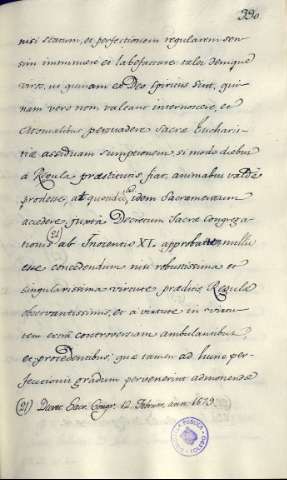 390
nisi statum, et perfectionem regularem sen-
sim imminuere et labefactare: tales denique
viros, ut quinam ex Deo Spiritus sint, qui-
nam vero non valeant internoscere, et
Monialibus persuadere Sacræ Eucharis-
tiæ assiduam sumptionem si modo diebus
à Regula præstitutis, fiat, animabus valdè
prodesse, at quotidie idem Sacramentum
accedere juxta Decretum Sacræ Congrega-
tionis (21) ab Inocentio XI. approbatum nulli
esse concedendum nisi robustissima et
singularissima virtute præditis, Regulæ
observantissimis, et à virtute in virtu-
tem extra controversiam ambulantibus,
et procedentibus: quæ tamen ad hunc per-
fectionis gradum pervenerint admonendæ
(21) Decret. Sacr. Congr. 12. Februar. ann. 1679.
PUBLICA
TOLEDO